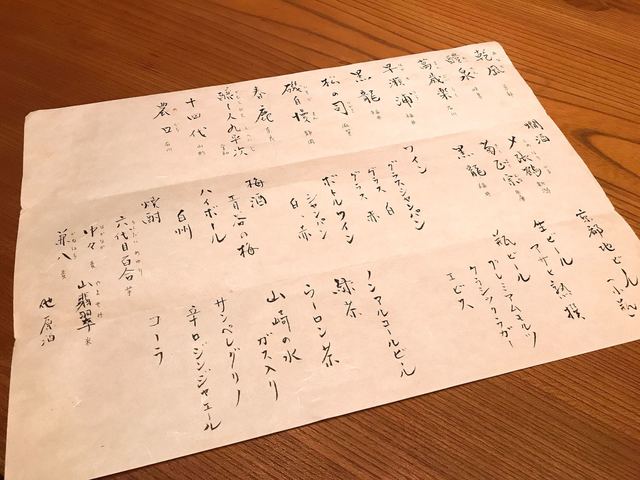 醴泉
萬歳楽 石川
早瀬浦 福井
黒龍 福井
松の司 滋賀
磯自慢 静岡
春鹿 奈良
醸し人九平次
十四代 山形
農口 石川
燗酒
〆張鶴 新潟
菊正宗 兵庫
黒龍 福井
ワイン
グラスシャンパン
グラス 赤
グラス 白
ボトルワイン
シャンパン
白、赤
梅酒
青谷の梅
ハイボール
白州
焼酎
六代目百合 芋
中々 麦
山翡翠 米
兼八 麦
他 原酒
京都地ビール 小瓶
生ビール
アサヒ熟撰
瓶ビール
プレミアムモルツ
クラシックラガー
エビス
ノンアルコールビール
緑茶
ウーロン茶
山崎の水
ガス入り
サンペレグリノ
辛口ジンジャエール
コーラ